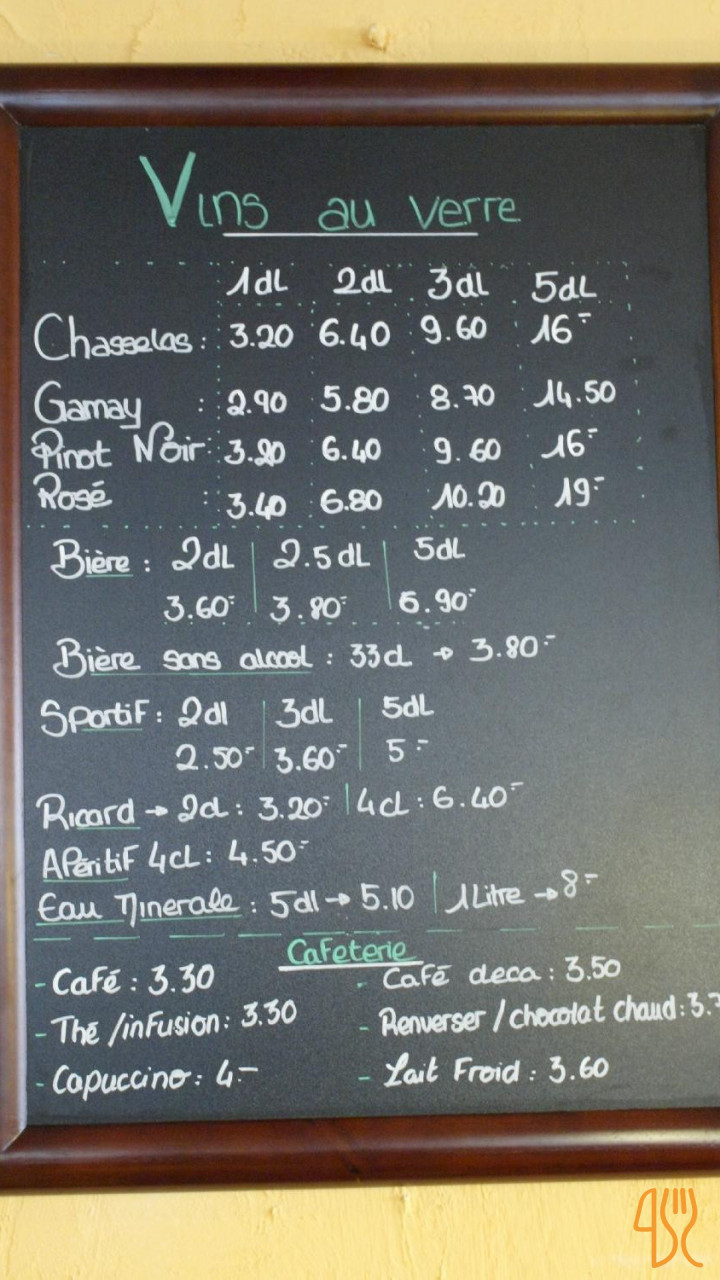 Vins au verre
1dl 2dl 3dl 5dL
Chasselas : 3.20 6.40 9.60 16.-
Gamay : 2.90 5.80 8.70 14.50
Pinot Noir : 3.20 6.40 9.60 16.-
Rosé : 3.40 6.80 10.20 19.-
Bière : 2dL | 2.5dL | 5dL
3.60.- | 3.80.- 6.90.-
Bière sans alcool : 33cL → 3.80.-
Sportif : 2dl | 3dL | 5dL
2.50.- | 3.60.- | 5.-
Ricard → 2cl : 3.20.- | 4cl : 6.40.-
Apéritif 4cL : 4.50.-
Eau Minerale : 5dl → 5.10 | 1 Litre → 8.-
Cafeterie
- Café : 3.30 - Café deca : 3.50
- Thé / infusion : 3.30 - Renverser / chocolat chaud :
- Capuccino : 4.- - Lait Froid : 3.60